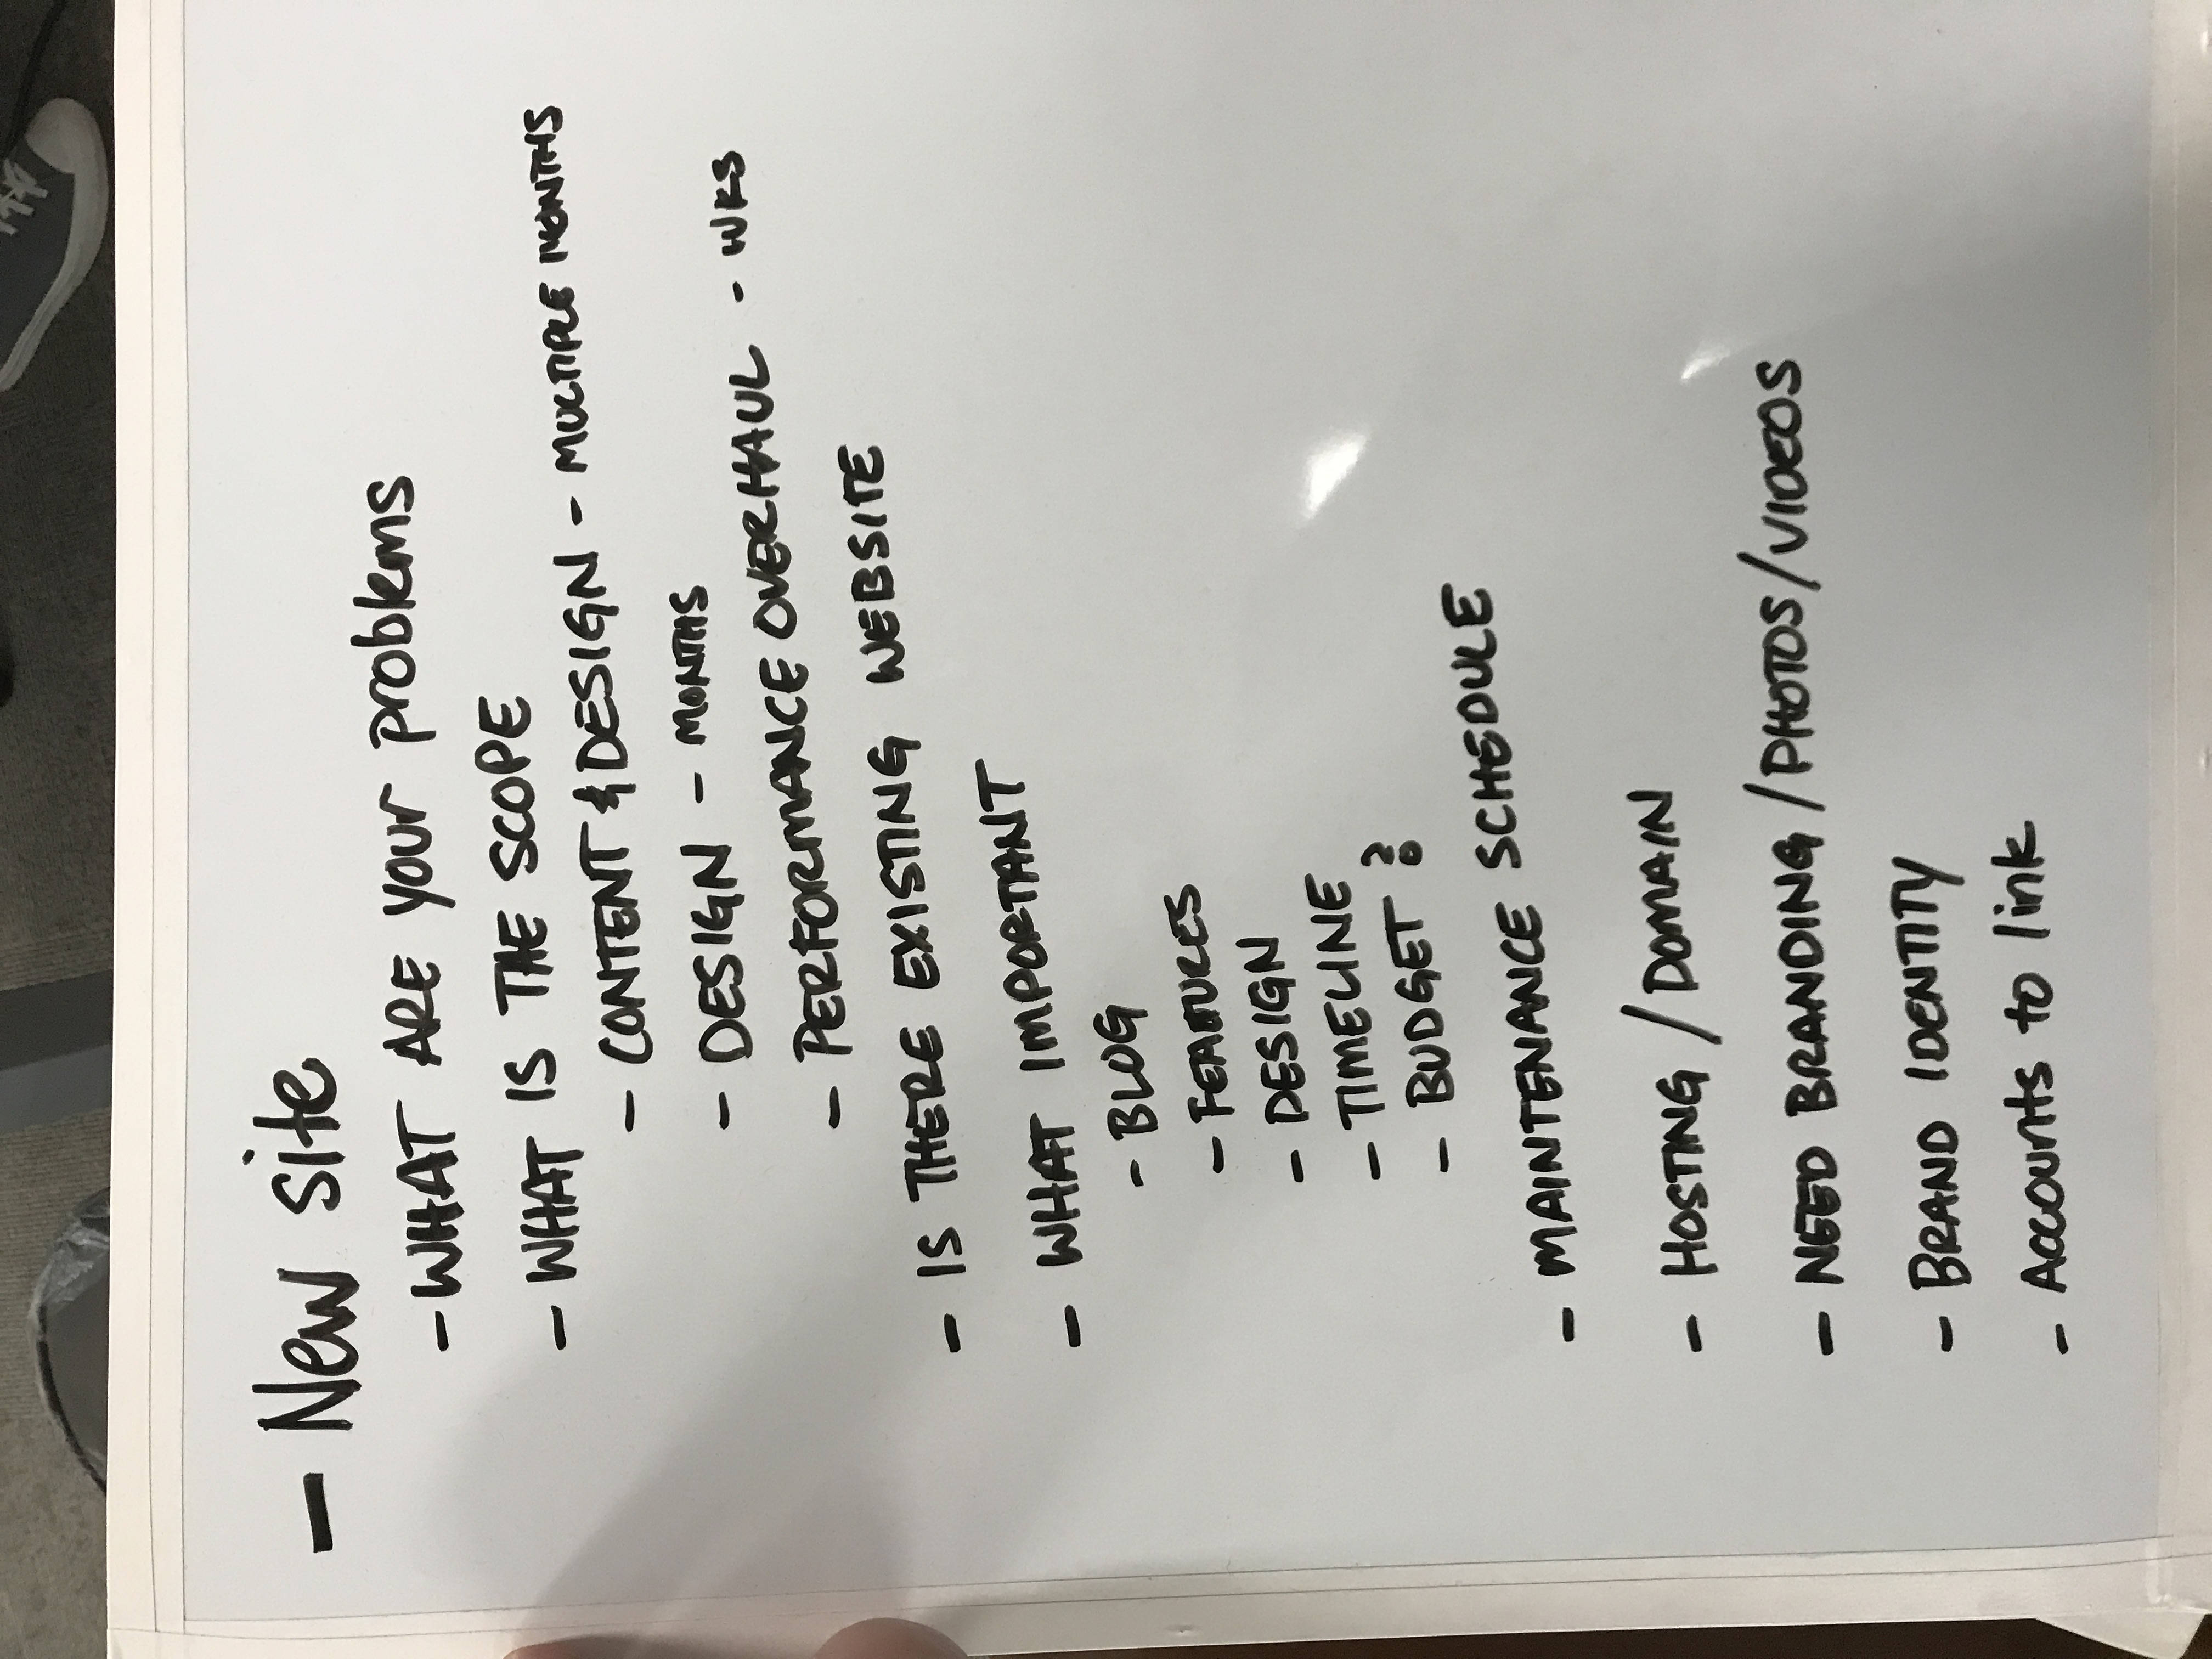 - New site
- WHAT ARE your problems
- WHAT IS THE SCOPE
- CONTENT & DESIGN - MULTIPLE MONTHS
- DESIGN - MONTHS
- PERFORMANCE OVERHAUL - WKS
- IS THERE EXISTING WEBSITE
- WHAT IMPORTANT
- BLOG
- FEATURES
- DESIGN
- TIMELINE
- BUDGET ?
- MAINTENANCE SCHEDULE
- HOSTING / DOMAIN
- NEED BRANDING / PHOTOS / VIDEOS
- BRAND IDENTITY
- Accounts to link